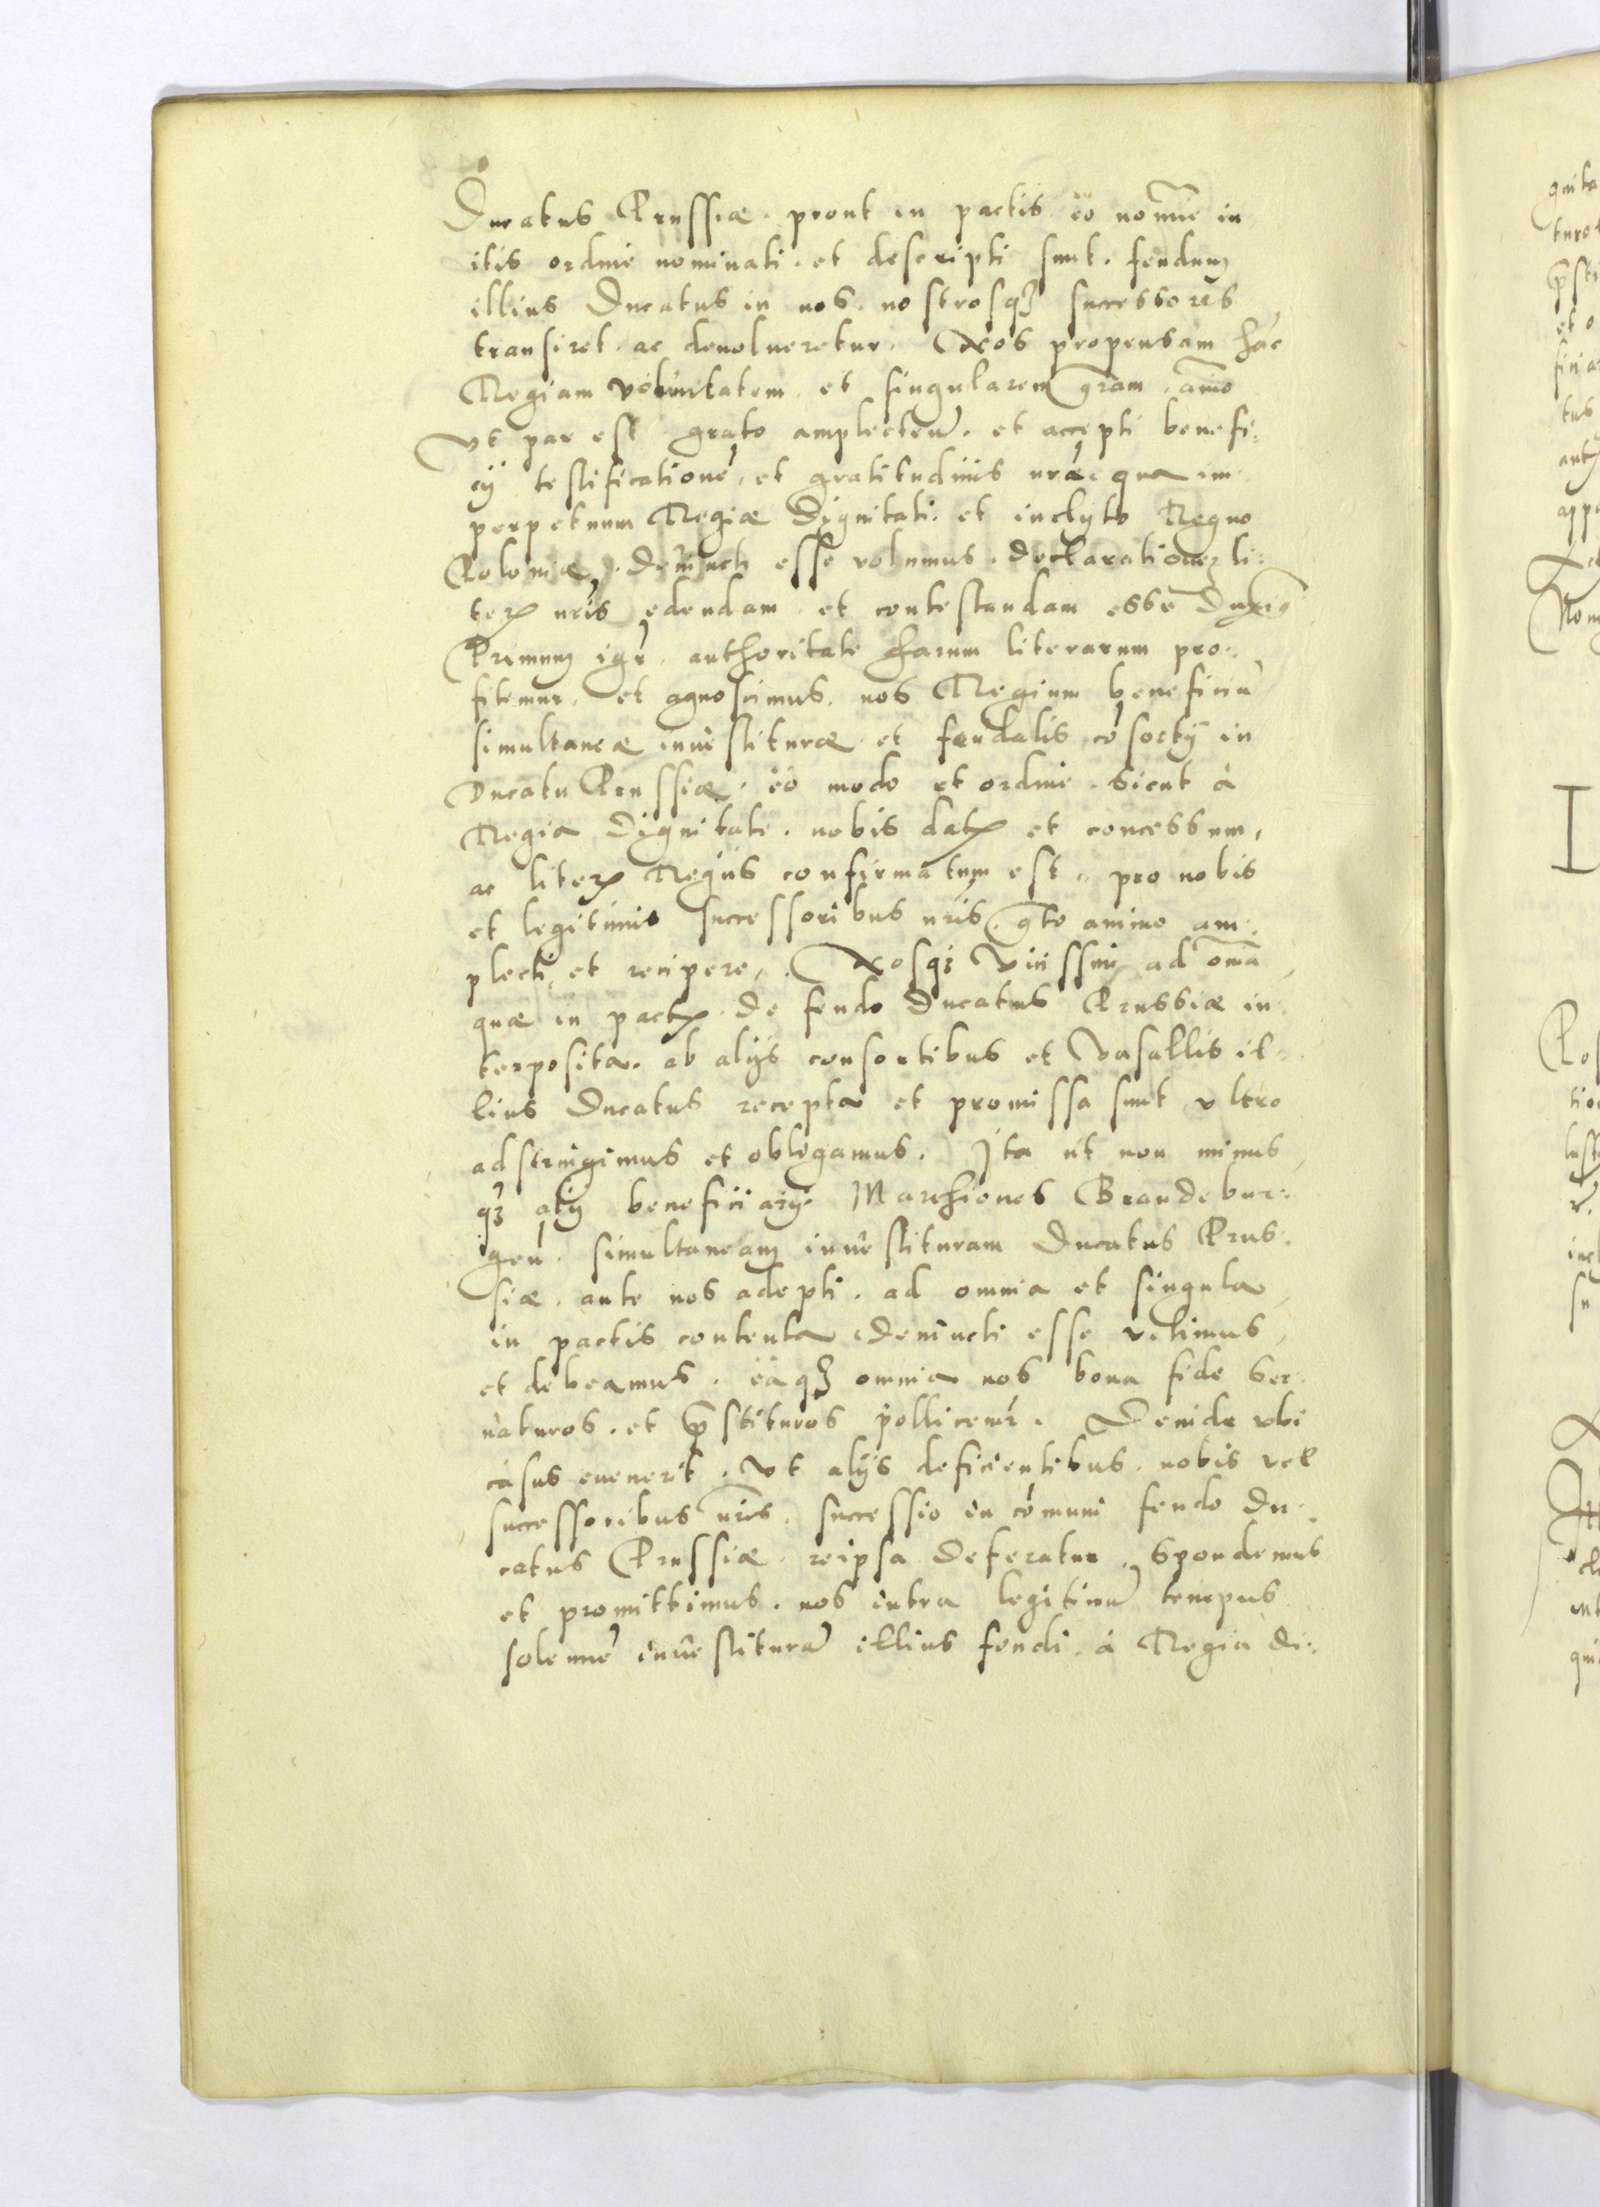 Ducatus Prussiæ. prout in pactis eo nomīe in
itis ordine nominati. et descripti sunt. feudum
illius Ducatus in nos. nostrosq3 successores
transiret. ac devolueretur. Nos propensam hāc
Regiam voluntatem. et singularem grām. aīmo
vt par est grato amplectētes. et accepti benefi:
cij testificationē, et gratitudinis nrāe, qua im
perpetuum Regiæ Dignitati. et inclyto Regno
Poloniæ, devincti esse volumus. declarationem li:
teris nrīs edendam. et contestandam esse duxim9
Primum igr̄. authoritate harum literarum pro:
fitemur. et agnoscimus. nos Regium beneficiū
simultaneæ inuestituræ et feudalis cōsortij in
Ducatu Prussiæ. eo modo et ordine. sicut à
Regia dignitate. nobis datum et concessum,
ac literis Regijs confirmatum est. pro nobis
et legitimis successoribus nrīs. grto animo am:
plecti, et recipere. Nosq3 vicissim ad omīa
quæ in pactis de feudo Ducatus Prussiæ in:
terposita. ab alijs consortibus et Vasallis il:
lius Ducatus recepta et promissa sunt vltro
adstringimus et obligamus. Ita ut non minus
q3 alij beneficiarij. Marchiones Brandebur:
gen. simultaneam inuestituram Ducatus Prus:
siæ. ante nos adepti. ad omnia et singula
in pactis contenta devincti esse velimus
et debeamus. eaq3 omnia nos bona fide ser:
uaturos. et p̄stituros pollicemr̄. Deinde vbi
casus euenerit. vt alijs deficientibus. nobis vel
successoribus nrīs. successio in cōmuni feudo Du:
catus Prussiæ. reipsa deferatur. spondemus
et promittimus. nos intra legitimū tempus
solennē inuestiturā illius feudi. à Regia di: